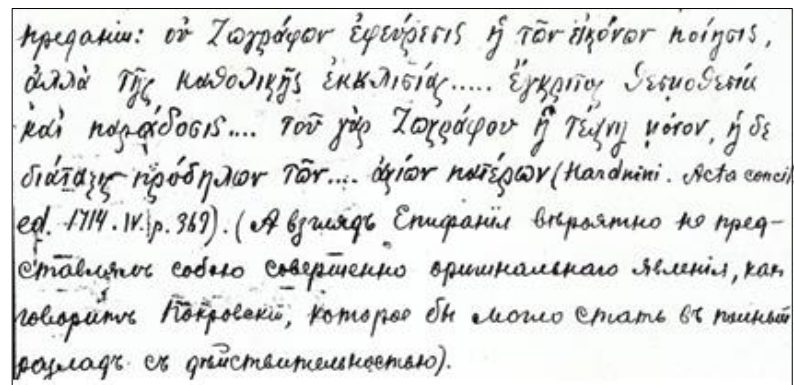 преданiи: οὐ Ζωγράφων ἐφεύρεσις ἡ τῶν εἰκόνων ποίησις,
ἀλλὰ τῆς καθολικῆς ἐκκλισίας..... ἔγκριτος θεσμοθεσία
καὶ παράδοσις.... τοῦ γὰρ Ζωγράφου ἡ τέχνη μόνον, ἡ δε
διάταξις πρόδηλον τῶν.... ἁγίων πατέρων (Hardnini. Acta concil.
ed. 1714. IV. p. 369). (А взглядъ Епифанiя вѣроятно не пред-
ставлялъ собою совершенно оригинальнаго явленiя, как
говоритъ Покровскiй, которое бы могло стать въ полный
разладъ съ дѣйствительностью).